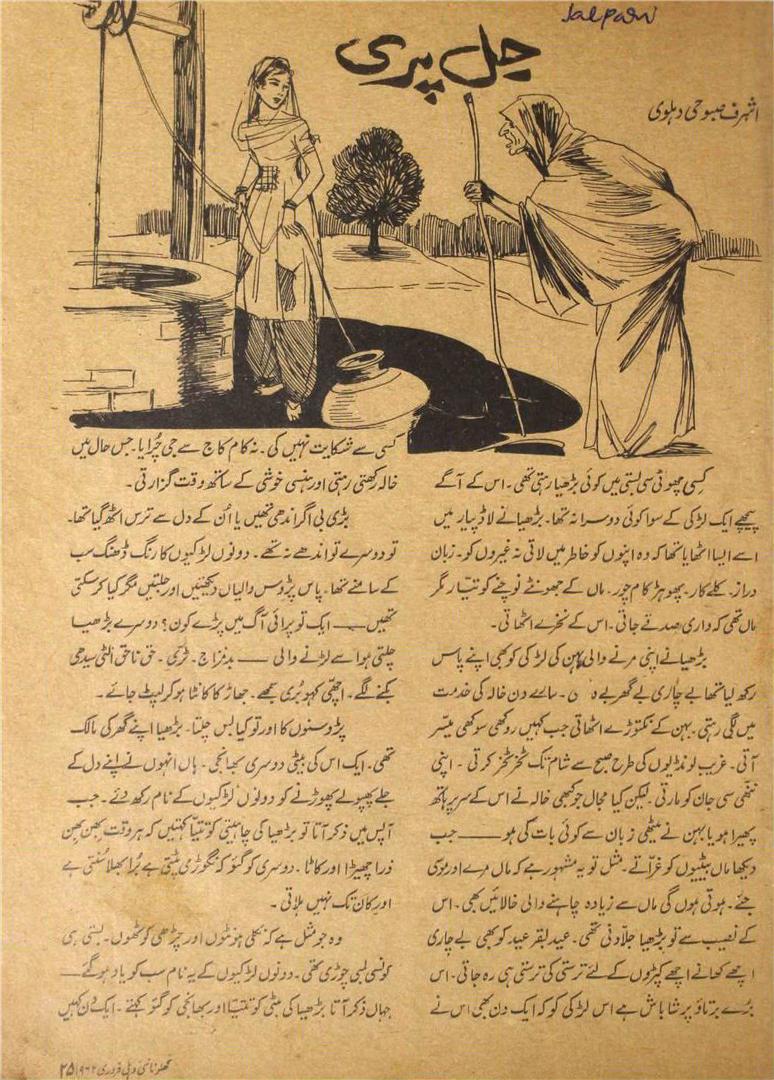 Jalpari
جل پری
اشرف صبوحی دہلوی
کسی چھوٹی سی بستی میں کوئی بڑھیا رہتی تھی۔ اس کے آگے
پیچھے ایک لڑکی کے سوا کوئی دوسرا نہ تھا۔ بڑھیا نے لاڈ پیار میں
اسے ایسا اٹھایا تھا کہ وہ اپنوں کو خاطر میں لاتی نہ غیروں کو۔ زبان
دراز۔ کلے کار۔ پھوہڑ کام چور۔ ماں کے جھونٹے نوچنے کو تیار مگر
ماں تھی کہ واری صدقے جاتی۔ اس کے نخرے اٹھاتی۔
بڑھیا نے اپنی مرنے والی بہن کی لڑکی کو بھی اپنے پاس
رکھ لیا تھا بے چاری بے گھر بے۔ سارے دن خالہ کی خدمت
میں لگی رہتی۔ بہن کے نکتوڑے اٹھاتی جب کہیں روکھی سوکھی میسر
آتی۔ غریب لونڈیوں کی طرح صبح سے شام تک ٹخر ٹخر کرتی۔ اپنی
ننھی سی جان کو مارتی۔ لیکن کیا مجال جو کبھی خالہ نے اس کے سر پر ہاتھ
پھیرا ہو یا بہن نے میٹھی زبان سے کوئی بات کی ہو —— جب
دیکھا ماں بیٹیوں کو غراتے۔ مثل تو یہ مشہور ہے کہ ماں مرے اور موسی
جئے۔ ہوتی ہوں گی ماں سے زیادہ چاہنے والی خالائیں بھی۔ اس
کے نصیب سے تو بڑھیا جلادنی تھی۔ عید بقر عید کو بھی بے چاری
اچھے کھانے اچھے کپڑوں کے لئے ترستی کی ترستی ہی رہ جاتی۔ اس
بڑے برتاؤ پر شاباش ہے اس لڑکی کو کہ ایک دن بھی اس نے
کسی سے شکایت نہیں کی۔ نہ کام کاج سے جی چرایا۔ جس حال میں
خالہ رکھتی رہتی اور ہنسی خوشی کے ساتھ وقت گزارتی۔
بڑی بی اگر اندھی تھیں یا ان کے دل سے ترس اٹھ گیا تھا۔
تو دوسرے تو اندھے نہ تھے۔ دونوں لڑکیوں کا رنگ ڈھنگ سب
کے سامنے تھا۔ پاس پڑوس والیاں دیکھتیں اور جلتیں مگر کیا کر سکتی
تھیں —— ایک تو پرائی آگ میں پڑے کون؟ دوسرے بڑھیا
چلتی ہوا سے لڑنے والی —— بدمزاج۔ ٹرکی۔ حق ناحق الٹی سیدھی
بکنے لگے۔ اچھی کہو بری سمجھے۔ جھاڑ کا کانٹا ہو کر لپٹ جائے۔
پڑوسنوں کا اور تو کیا بس چلتا۔ بڑھیا اپنے گھر کی مالک
تھی۔ ایک اس کی بیٹی دوسری بھانجی۔ ہاں انہوں نے اپنے دل کے
جلے پھپولے پھوڑنے کو دونوں لڑکیوں کے نام رکھ دئے۔ جب
آپس میں ذکر آتا تو بڑھیا کی چاہیتی کو تتیا کہتیں کہ ہر وقت بھن بھن
ذرا چھیڑا اور کاٹا۔ دوسری کو گئو کہ نگوڑی پٹتی ہے برا بھلا سنتی ہے
اور کان تک نہیں ہلاتی۔
وہ جو مثل ہے کہ نکلی ہونٹوں اور چڑھی کوٹھوں۔ بستی ہی
کونسی لمبی چوڑی تھی۔ دونوں لڑکیوں کے یہ نام سب کو یاد ہو گئے ——
جہاں ذکر آتا بڑھیا کی بیٹی کو تتیا اور بھانجی کو گئو کہتے۔ ایک دن کہیں
کھلونا نئی دہلی فروری ۱۹۶۲ ۲۵